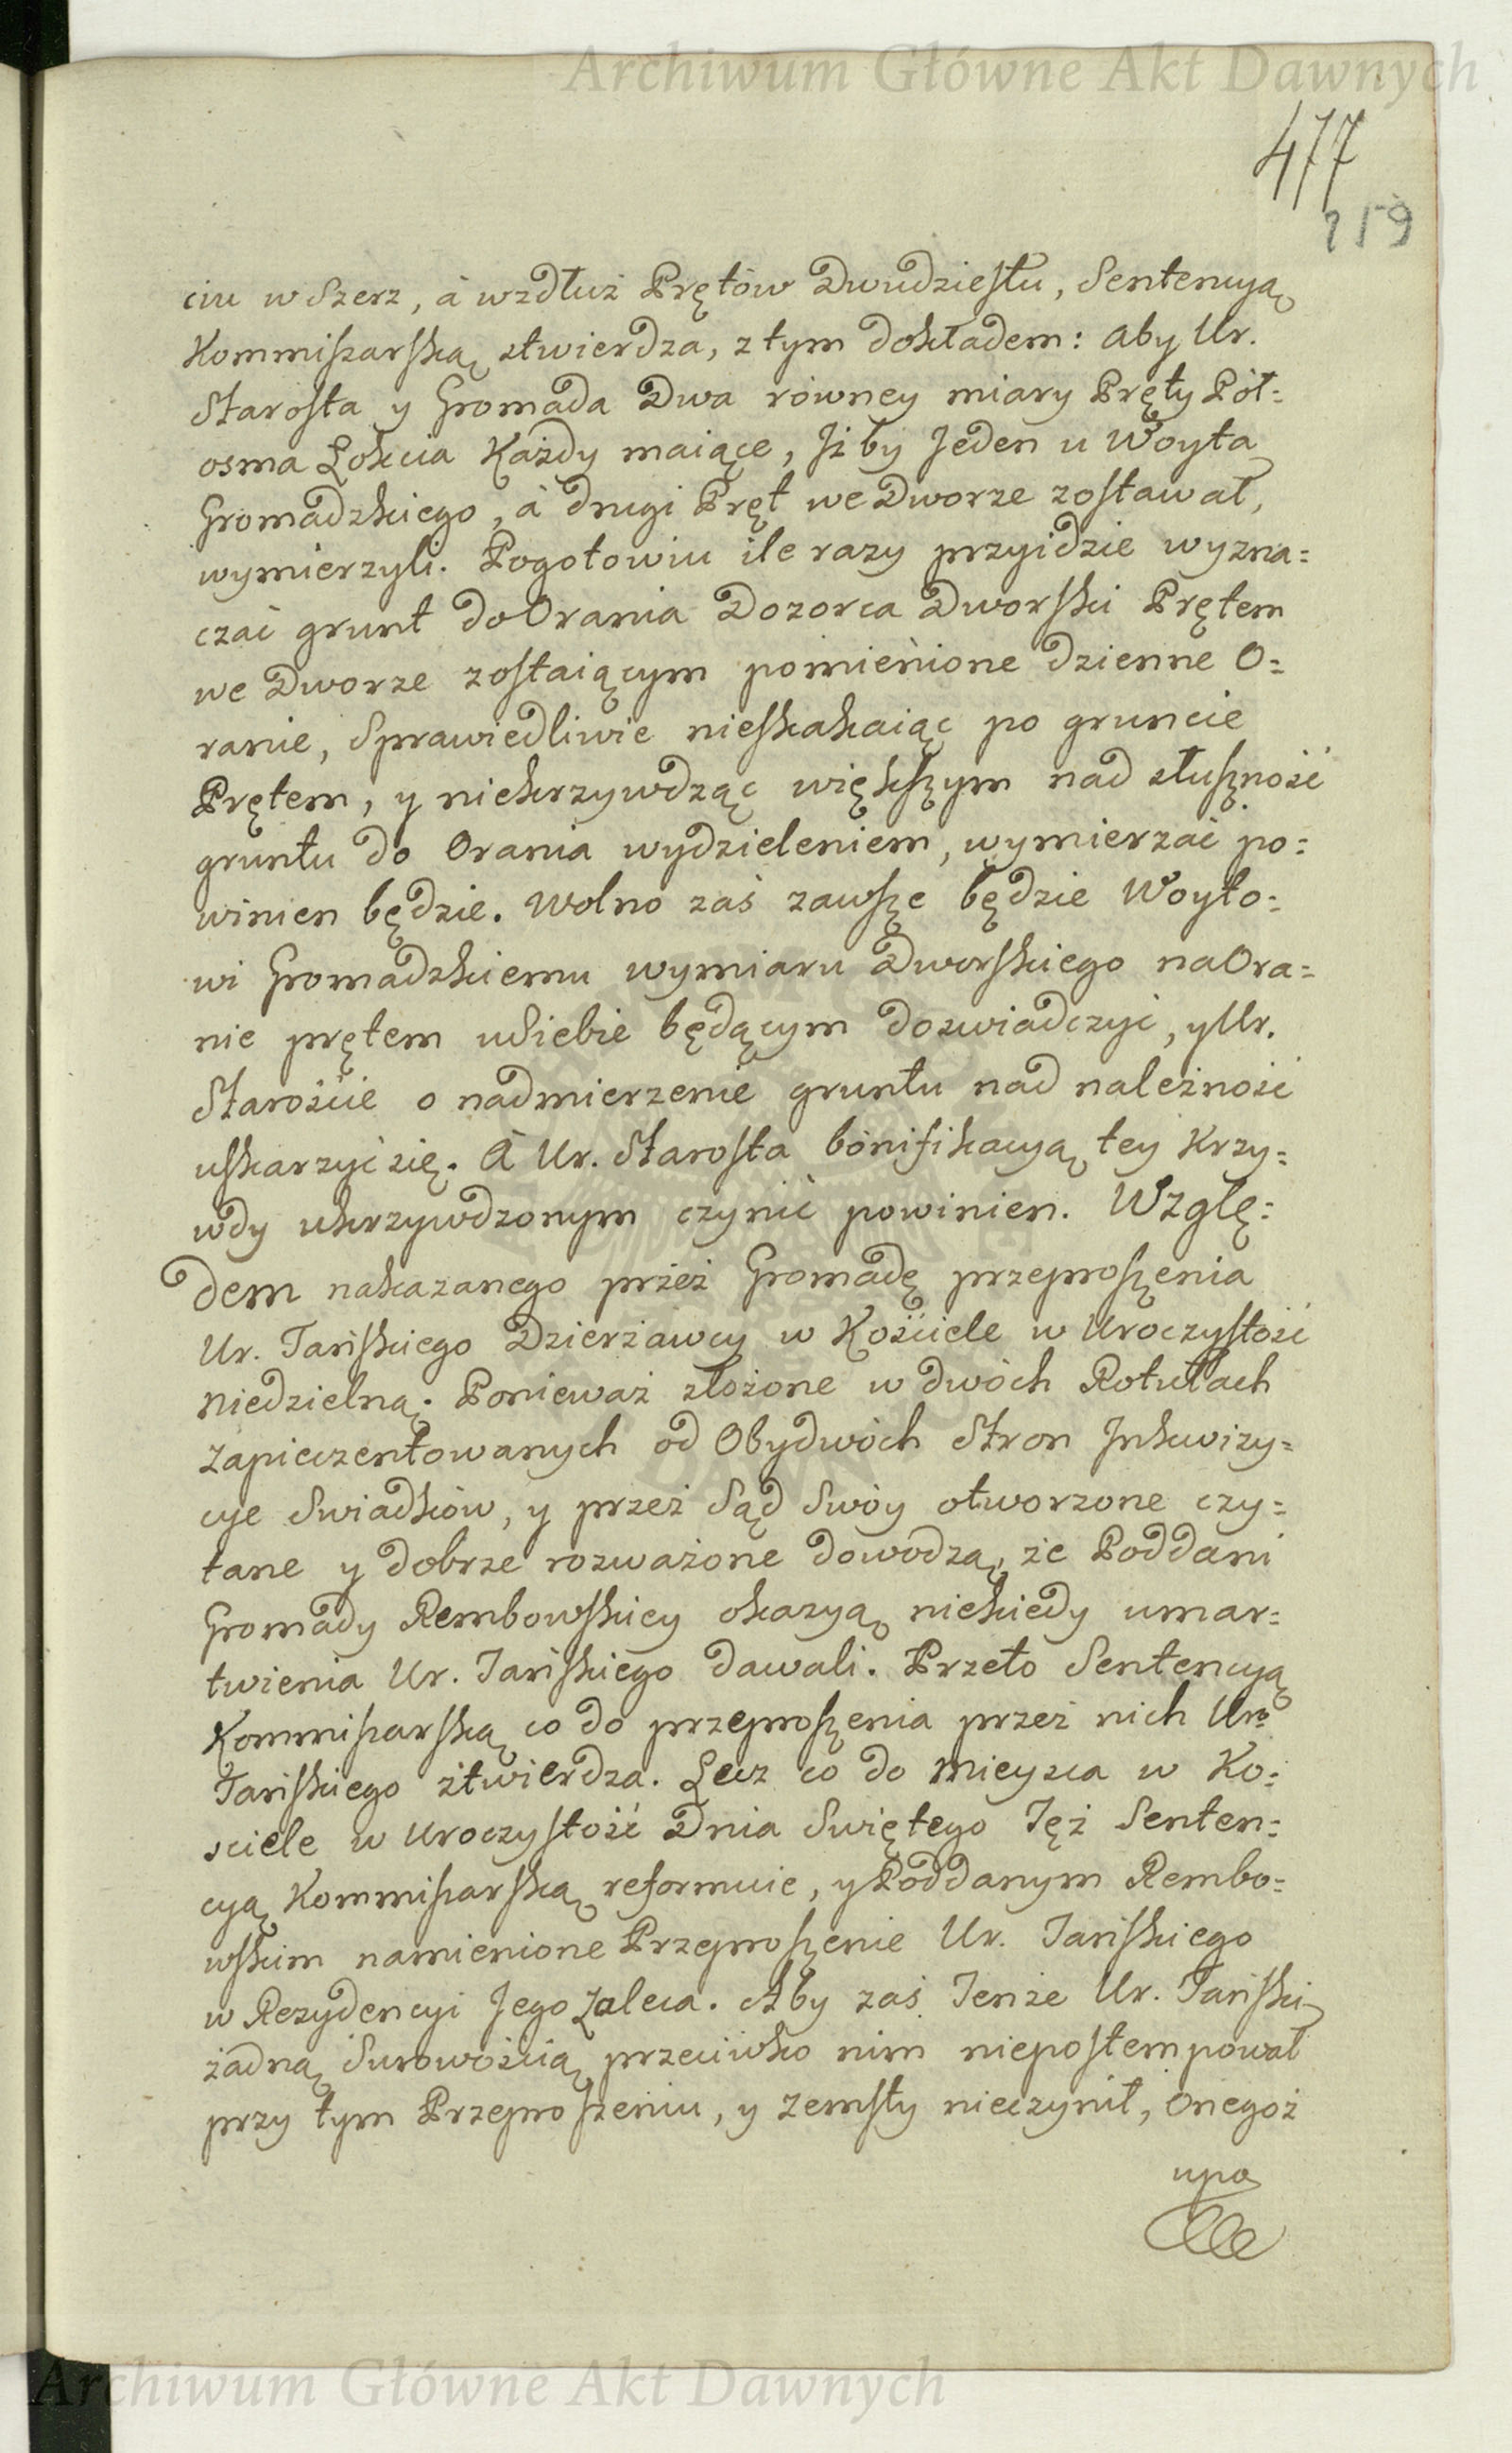 Archiwum Główne Akt Dawnych
477
259
ciu w Szerz, à wzdłuż Prętów Dwudziestu, Sentencyą
Kommissarską ztwierdza, z tym dokładem: aby Ur.
Starosta y Gromada Dwa równey miary Pręty Pół=
osma Łokcia Każdy maiące, Jż by Jeden u Woyta
Gromadzkiego, à drugi Pręt we Dworze zostawał,
wymierzyli. Pogotowiu ile razy przyidzie wyzna=
czać grunt do Orania Dozorca Dworski Prętem
we Dworze zostaiącym pomienione dzienne O=
ranie, Sprawiedliwie nieskakaiąc po gruncie
Prętem, y niekrzywdząc większym nad słuszność
gruntu do Orania wydzieleniem, wymierzać po=
winien będzie. Wolno zaś zawsze będzie Woyto=
wi Gromadzkiemu wymiaru Dworskiego na Ora=
nie prętem u Siebie będącym doświadczyć, y Ur.
Starościе o nadmierzenie gruntu nad należność
uskarzyć się. A Ur. Starosta bonifikacyą tey Krzy=
wdy ukrzywdzonym czynić powinien. Wzglę=
dem nakazanego przez Gromadę przeproszenia
Ur. Tańskiego Dzierżawcy w Kościele w Uroczystość
Niedzielną. Ponieważ złożone w dwóch Rotułach
zapieczentowanych od Obydwóch Stron Jnkwizy=
cye Swiadków, y przez Sąd Swóy otworzone czy=
tane y dobrze rozważone dowodzą, że Poddani
Gromady Rembowskiey okazyą niekiedy umar=
twienia Ur. Tańskiego dawali. Przeto Sentencyą
Kommissarską co do przeproszenia przez nich Uro
Tańskiego ztwierdza. Lecz co do Mieysca w Ko=
sciele w Uroczystość Dnia Swiętego Tęż Senten=
cyą Kommissarską reformuie, y Poddanym Rembo=
wskim namienione Przeproszenie Ur. Tańskiego
w Rezydencyi Jego Zaleca. Aby zaś Tenże Ur. Tański
żadną Surowością przeciwko nim niepostempował
przy tym Przeproszeniu, y zemsty nieczynił, Onegoż
upo
Archiwum Główne Akt Dawnych